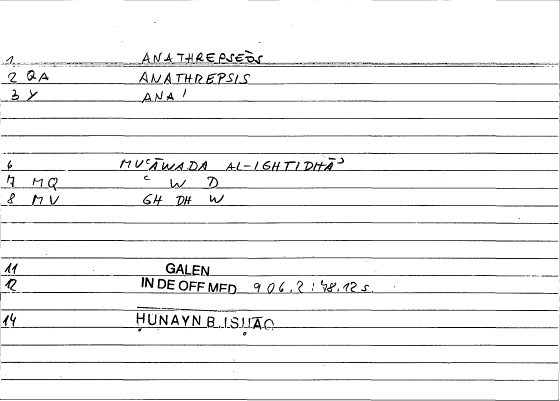 1 ANATHREPSEŌS
2 QA ANATHREPSIS
3 Y ANA'
6 MUʿĀWADA AL-IGHTIDHĀʾ
7 MQ ʿ W D
8 MV GH DH W
11 GALEN
12 IN DE OFF MED 906.2:48.12 s.
14 ḤUNAYN B. ISḤĀQ